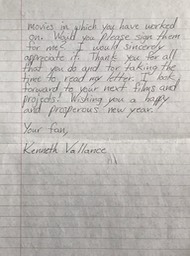 movies in which you have worked
on. Would you please sign them
for me? I would sincerely
appreciate it. Thank you for all
that you do and for taking the
time to read my letter. I look
forward to your next films and
projects. Wishing you a happy
and prosperous new year.
Your fan,
Kenneth Vallance